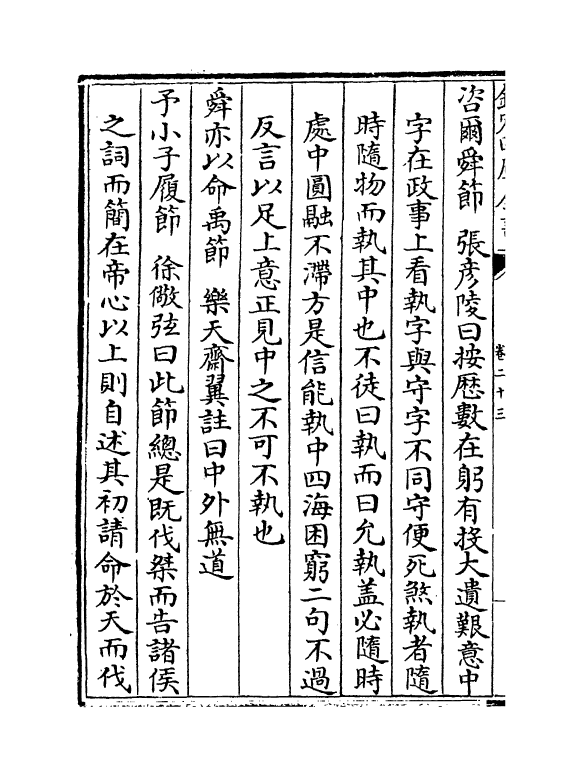 欽定四庫全書
卷二十三
咨爾舜節　張彥陵曰按歷數在躬有投大遺艱意中
字在政事上看執字與守字不同守便死煞執者隨
時隨物而執其中也不徒曰執而曰允執蓋必隨時
處中圓融不滯方是信能執中四海困窮二句不過
反言以足上意正見中之不可不執也
舜亦以命禹節　樂天齋翼註曰中外無道
予小子履節　徐儆弦曰此節總是既伐桀而告諸侯
之詞而簡在帝心以上則自述其初請命於天而伐